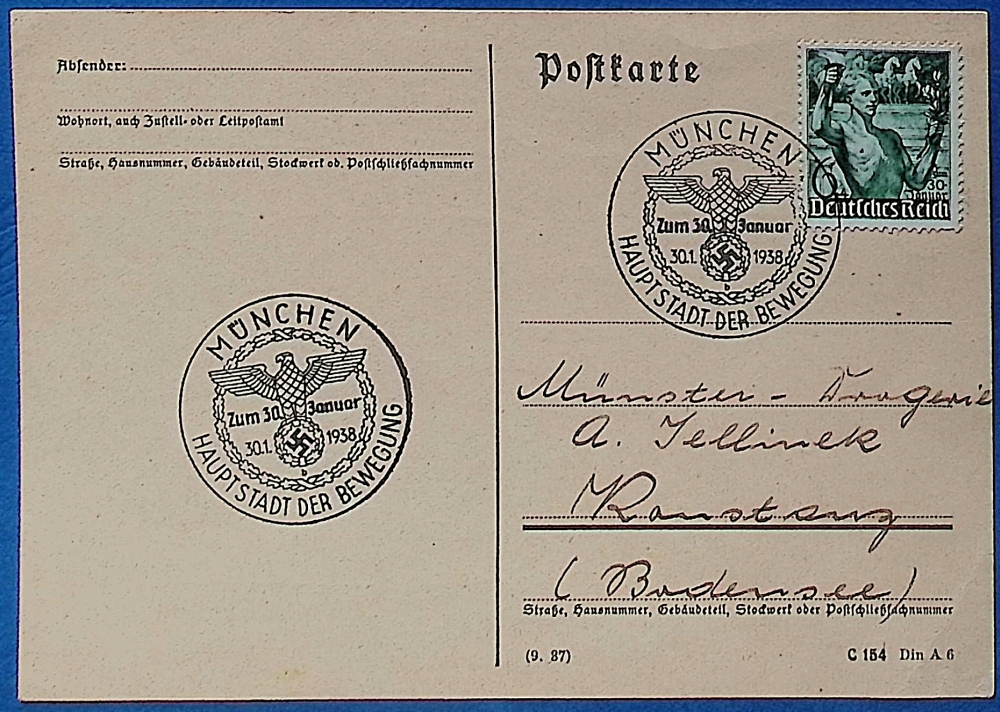 Absender:
Wohnort, auch Zustell- oder Leitpostamt
Straße, Hausnummer, Gebäudeteil, Stockwerk od. Postschließfachnummer
MÜNCHEN
Zum 30. Januar
30.1. 1938
b
HAUPTSTADT DER BEWEGUNG
Postkarte
6
Zum
30.
Januar
Deutsches Reich
MÜNCHEN
Zum 30. Januar
30.1. 1938
b
HAUPTSTADT DER BEWEGUNG
Münster - Drogerie
A. Jellinek
Konstanz
(Bodensee)
Straße, Hausnummer, Gebäudeteil, Stockwerk oder Postschließfachnummer
(9. 37)
C 154 Din A 6